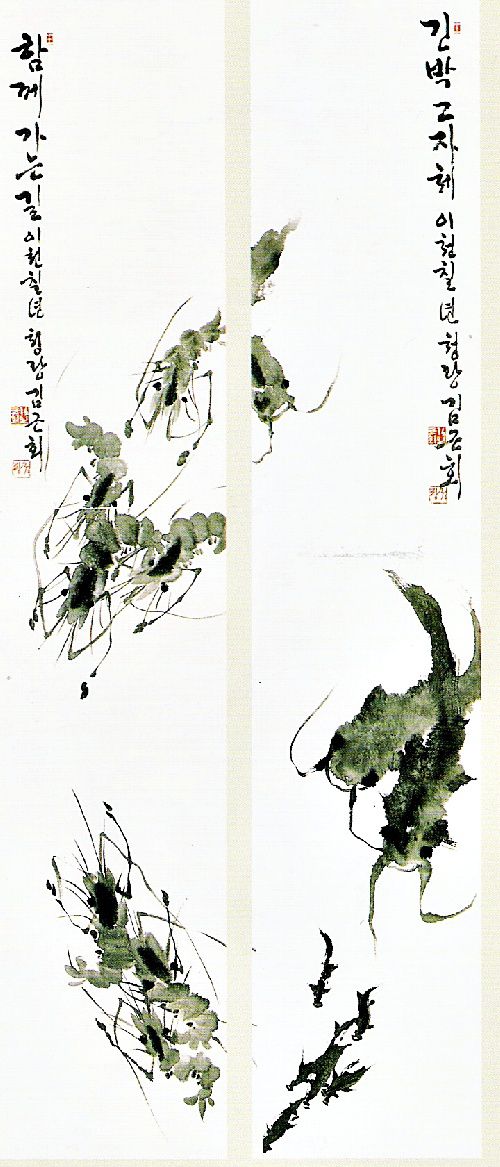 함께가는길 이천칠년 청강 김근회
긴박고자체 이천칠년 청강 김근회